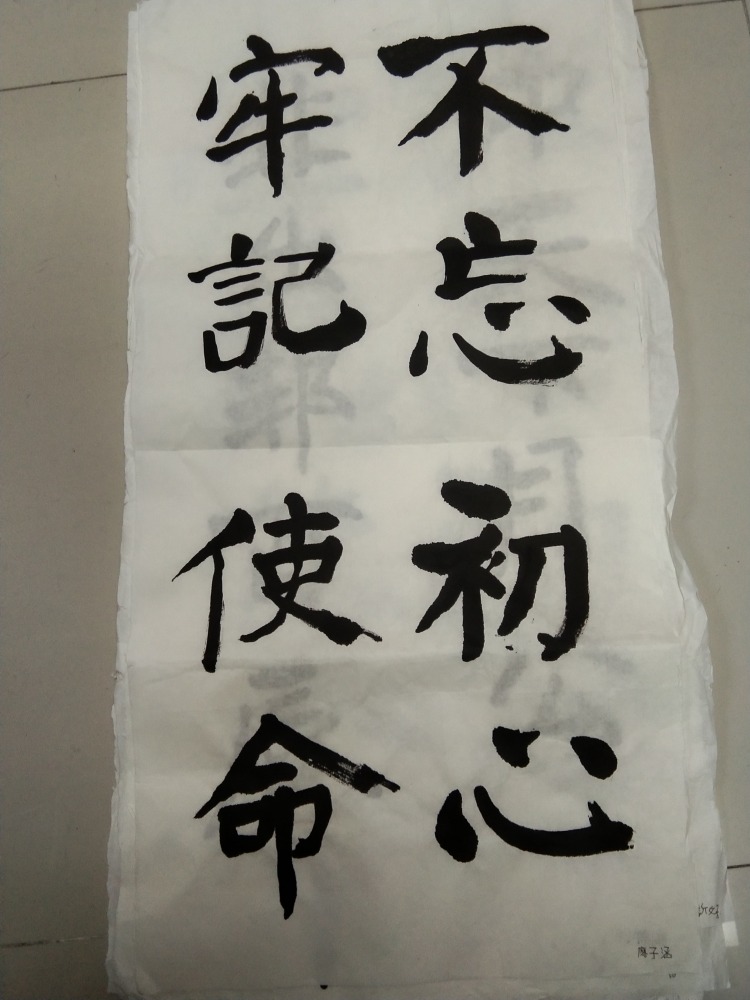 不忘初心
牢記使命
子涵